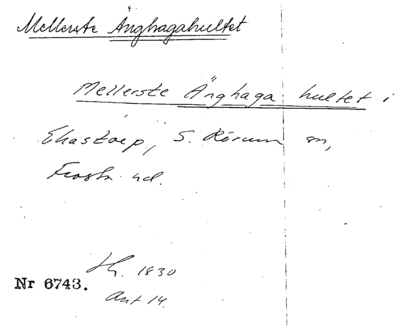 Mellersta Änghagahultet
Mellersta Änghaga hultet i
Ekastorp, S. Rörum sn,
Frosta hd.
Sk. 1830
Nr 6743.
Akt 14.